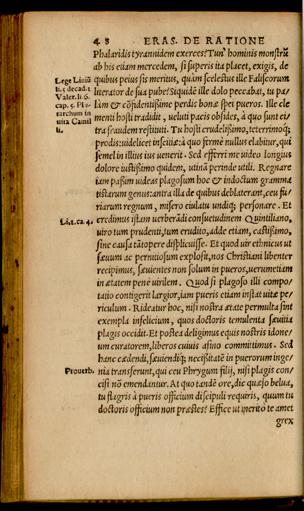 48 ERAS. DE RATIONE
Phalaridis tyrannidem exerces? Tun' hominis monstrū
ab his etiam mercedem, si superis ita placet, exigis, de
Lege Liuiū
quibus peius sis meritus, quàm scelestus ille Faliscorum
li.5 decad.1
literator de sua pube? Siquidē ille dolo peccabat, tu pa/
Valer. li.6.
làm & cōfidentißime perdis bonæ spei pueros. Ille cle
cap. 5. Plu
tarchum in
menti hosti tradidit, ueluti pacis obsides, à quo sunt ci/
uita Camil
tra fraudem restituti. Tu hosti crudelißimo, teterrimoq;
li.
prodis: uidelicet inscitiæ: à quo firmè nullus elabitur, qui
semel in illius ius uenerit. Sed efferri me uideo longius
dolore iustißimo quidem, utinā perinde utili. Regnare
iam paßim uideas plagosum hoc & indoctum gramma
tistarum genus: antra illa de quibus deblaterant, ceu fu/
riarum regnum, misero eiulatu undiq; personare. Et
Li.1.ca.4.
credimus istam uerberādi consuetudinem Quintiliano,
uiro tum prudenti, tum erudito, adde etiam, castißimo,
sine causa tātopere displicuisse. Et quod uir ethnicus ut
sæuum ac perniciosum explosit, nos Christiani libenter
recipimus, sæuientes non solum in pueros, uerumetiam
in ætatem penè uirilem. Quod si plagoso illi compo/
tatio contigerit largior, iam pueris etiam instat uitæ pe/
riculum. Rideatur hoc, nisi nostra ætate permulta sint
exempla infelicium, quos doctoris temulenta sæuitia
plagis occidit. Et postea deligimus equis nostris idone/
um curatorem, liberos cuiuis asino committimus. Sed
hanc cædendi, sæuiendiq; neceßitatē in puerorum inge/
Prouerb.
nia transferunt, qui ceu Phrygum filij, nisi plagis con/
cisi nō emendantur. At quo tandē ore, dic quæso belua,
tu flagris à pueris officium discipuli requiris, quum tu
doctoris officium non præstes? Effice ut meritò te amet
grex